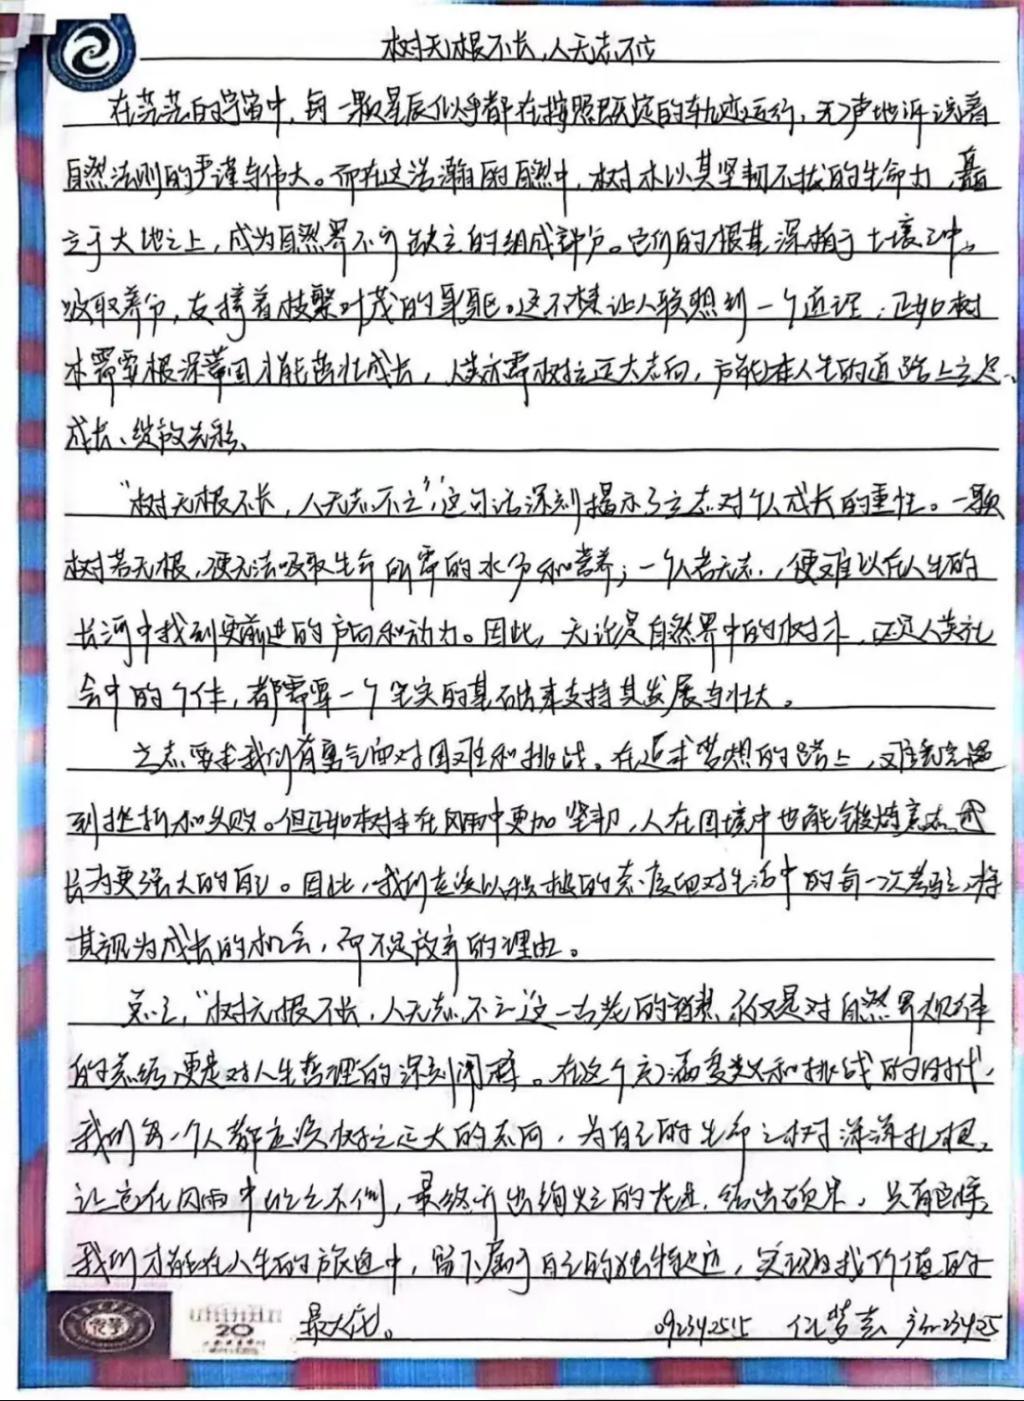 树无根不长,人无志不立
在茫茫的宇宙中,每一颗星辰似乎都在按照既定的轨迹运行,无声地诉说着
自然法则的严谨与伟大。而在这浩瀚的自然中,树木以其坚韧不拔的生命力,矗
立于大地之上,成为自然界不可缺立的组成部分。它们的根基深植于土壤之中,
吸取养分,支撑着枝繁叶茂的身躯。这不禁让人联想到一个道理:正如树
木需要根深蒂固才能茁壮成长,人类亦需树立远大志向,方能在人生的道路上立足、
成长、绽放光彩、
"树无根不长,人无志不立",这句话深刻揭示了立志对个人成长的重性。一颗
树若无根,便无法吸取生命所需的水分和营养;一个人若无志,便难以在人生的
长河中找到要前进的方向和动力。因此,无论是自然界中的树木,还是人类社
会中的个体,都需要一个坚实的基础来支持其发展与壮大。
立志要求我们有勇气面对困难和挑战。在追求梦想的路上,难免会遇
到挫折和失败。但正如树木在风雨中更加坚韧,人在困境中也能锻炼意志,成
长为更强大的自己。因此,我们应该以积极的态度面对生活中的每一次考验,将
其视为成长的机会,而不是放弃的理由。
总之,"树无根不长,人无志不立"这一古老的智慧,不仅是对自然界规律
的总结,更是对人生哲理的深刻阐释。在这个充满变数和挑战的时代,
我们每一个人都应该树立远大的志向,为自己的生命之树深深扎根,
让它在风雨中屹立不倒,最终开出绚烂的花朵,结出硕果。只有这样,
我们才能在人生的旅途中,留下属于自己的独特足迹,实现自我价值的
最大化。
20
092342515 任梦志